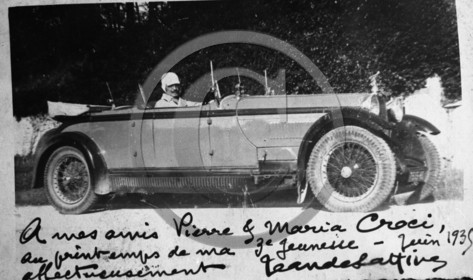 A mes amis Pierre & Maria Croci,
au printemps de ma 3e Jeunesse - Juin 193
affectueusement